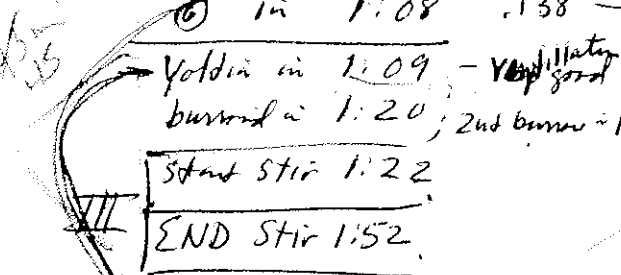 ⑥ in 1:08 .138 —
Yoldia in 1:09 — good
burrowed in 1:20; 2nd burrow
Start Stir 1:22
END Stir 1:52
III